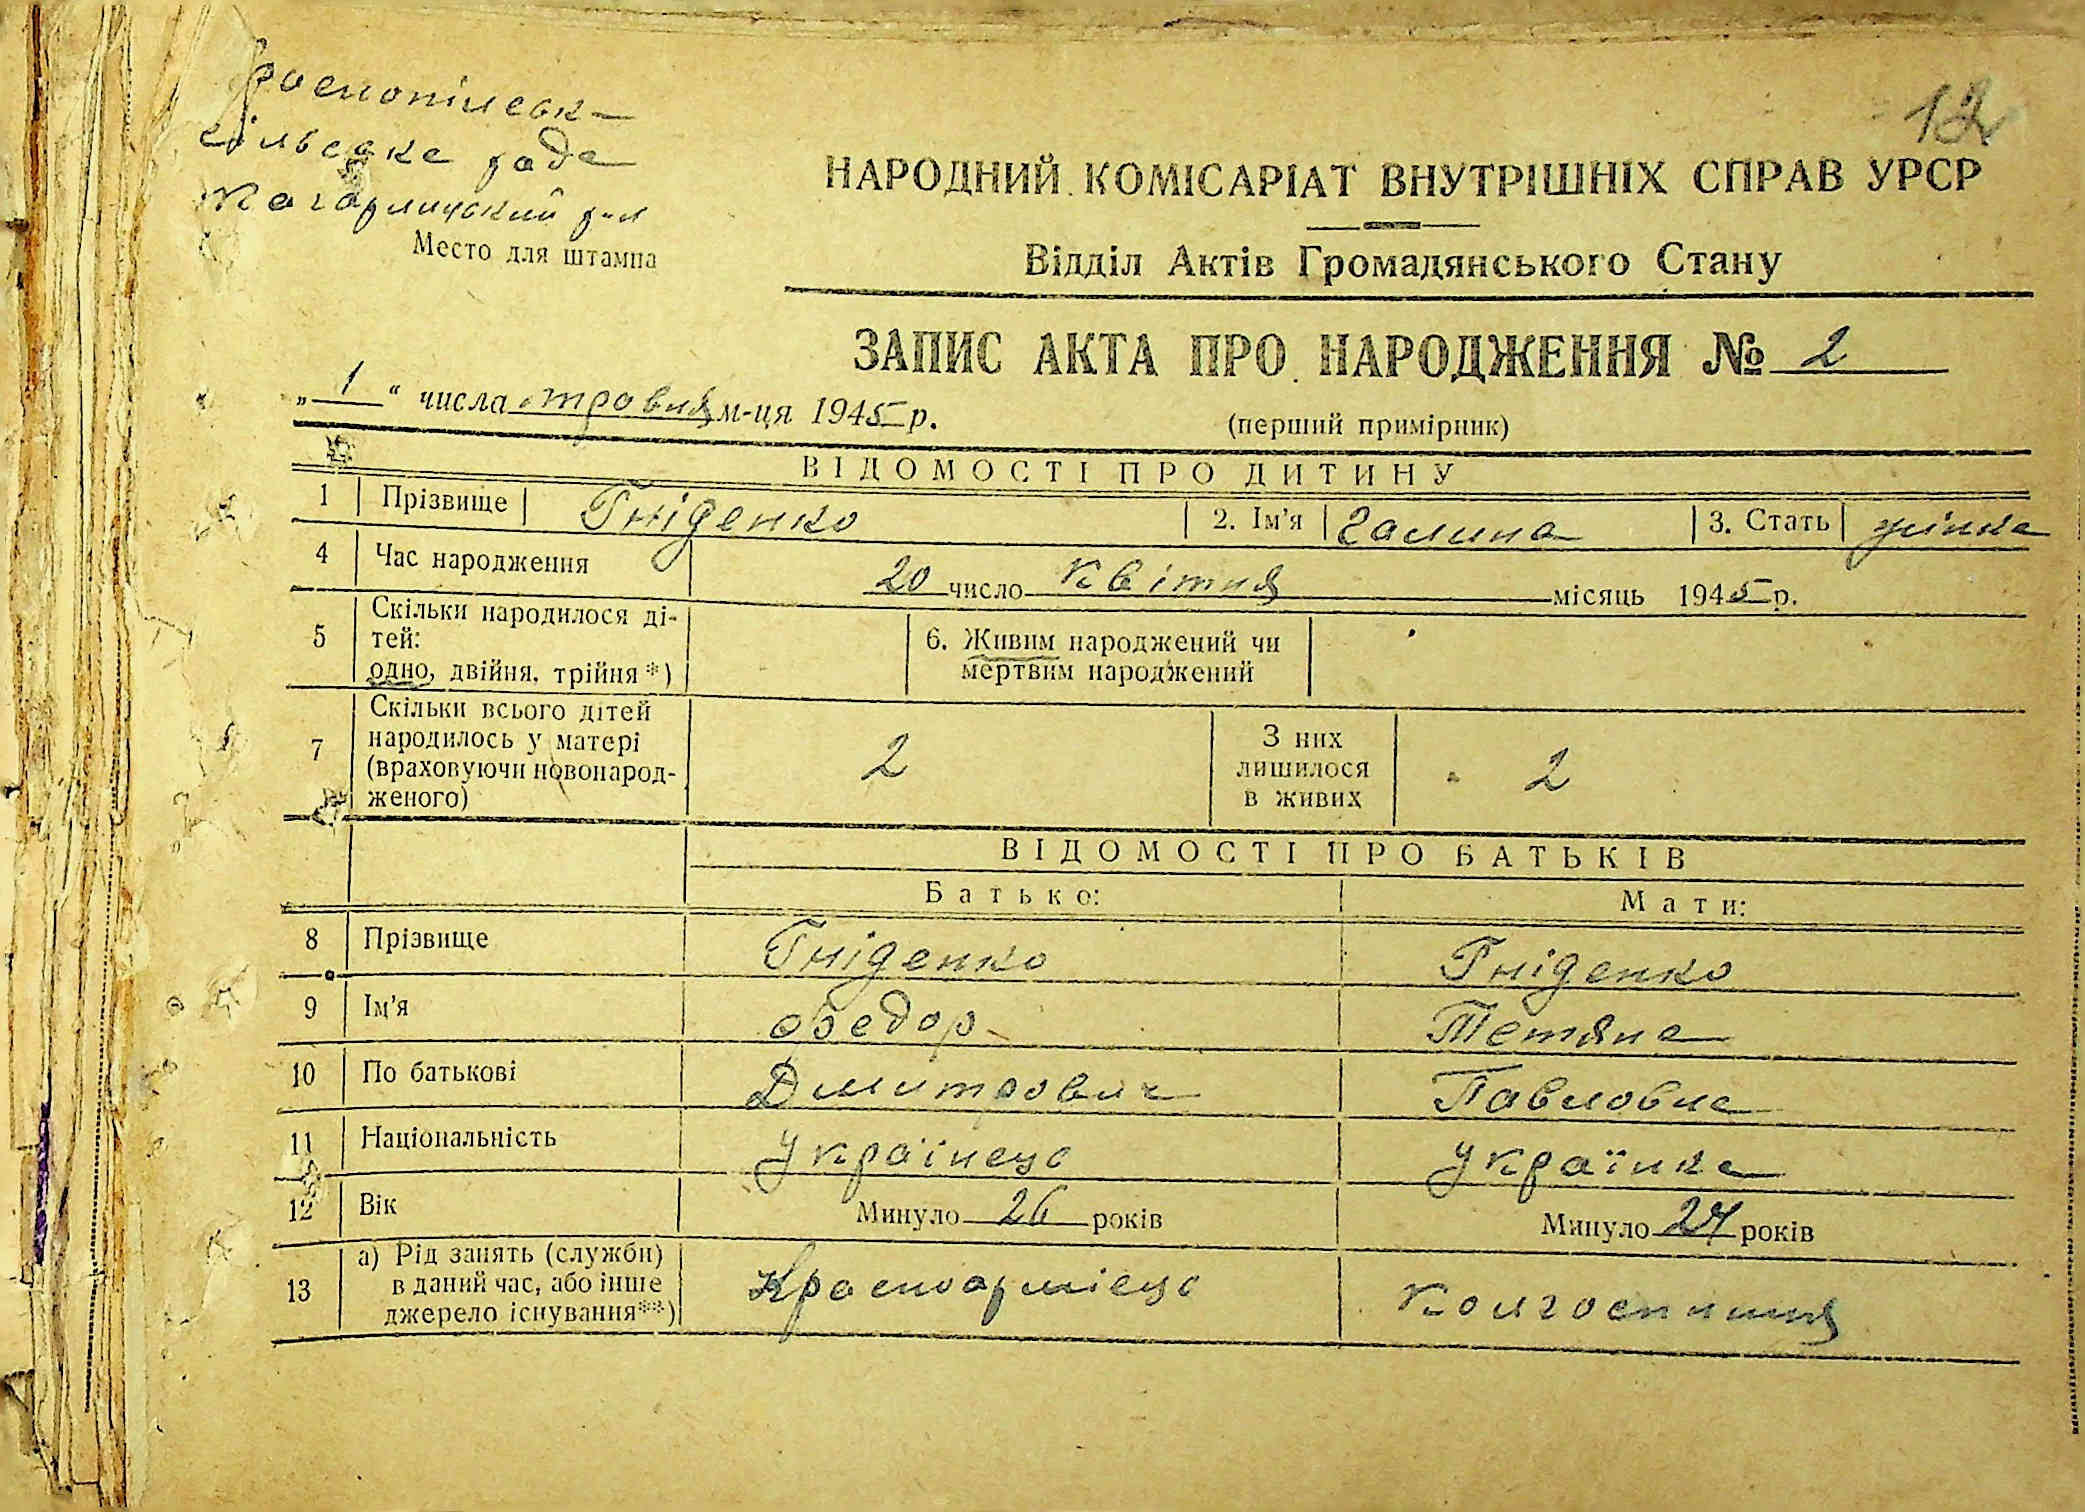 сільська рада
Кагарлицький р-н
Место для штампа
12
НАРОДНИЙ КОМІСАРІАТ ВНУТРІШНІХ СПРАВ УРСР
Відділ Актів Громадянського Стану
ЗАПИС АКТА ПРО НАРОДЖЕННЯ № 2
„ 1 “ числа травня м-ця 1945 р.
(перший примірник)
ВІДОМОСТІ ПРО ДИТИНУ
1 Прізвище Гніденко 2. Ім'я Галина 3. Стать жінка
4 Час народження 20 число квітня місяць 1945 р.
5 Скільки народилося ді-
тей:
одно, двійня, трійня *)
6. Живим народжений чи
мертвим народжений
7 Скільки всього дітей
народилось у матері
(враховуючи новонарод-
женого)
2
З них
лишилося
в живих
2
ВІДОМОСТІ ПРО БАТЬКІВ
Батько: Мати:
8 Прізвище Гніденко Гніденко
9 Ім'я Федор Тетяна
10 По батькові Дмитрович Павловна
11 Національність Українець Українка
12 Вік Минуло 26 років Минуло 24 років
13 а) Рід занять (служби)
в даний час, або інше
джерело існування**)
Красноармієць Колгоспниця